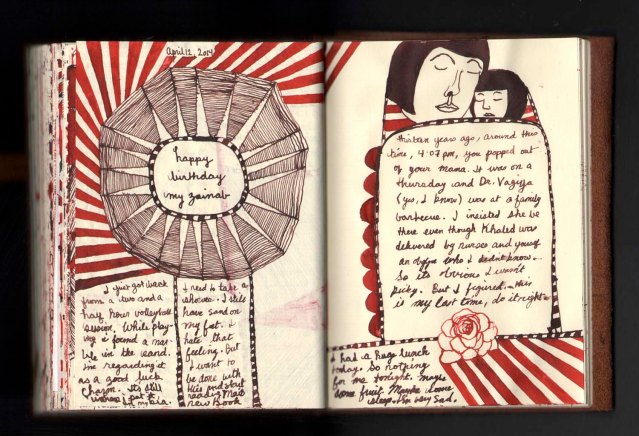 April 12, 2014
happy
birthday
my zainab
I just got back
from a two and a
half hour volleyball
session. While play-
ing I found a mar-
ble in the sand.
I'm regarding it
as a good luck
charm. It's still
I put it
in my bra.
I need to take a
shower. I still
have sand on
my feet. I
hate that
feeling. But
I want to
be done with
this and start
reading
new Book
thirteen years ago, around this
time, 4:07 pm, you popped out
of your mama. It was on a
thursday and Dr. Vagiya
(yes, I know) was at a family
barbecue. I insisted she be
there even though Khaled was
delivered by nurses and yousef
an obgyn who I didn't know.
So its obvious I wasn't
picky. But I figured... this
is my last time, do it right.
I had a huge lunch
today. So nothing
for me tonight. Maybe
some fruit. Maybe some
sleep. I'm very sad.